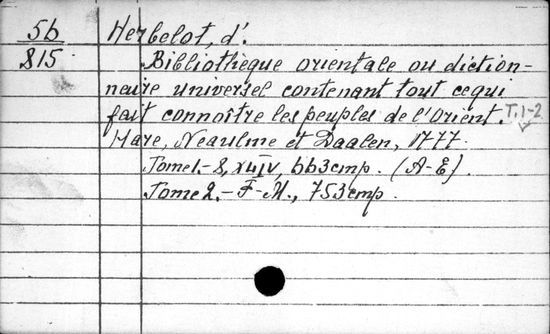 5b Herbelot, d'.
815 Bibliothèque orientale ou diction-
naire universel contenant tout ce qui
fait connoître les peuples de l'Orient. T.1-2
Haye, Neaulme et Daalen, 1777.
Tome 1.- 8, XLIIV, 663 стр. (A-E).
Tome 2.- F-M., 753 стр.